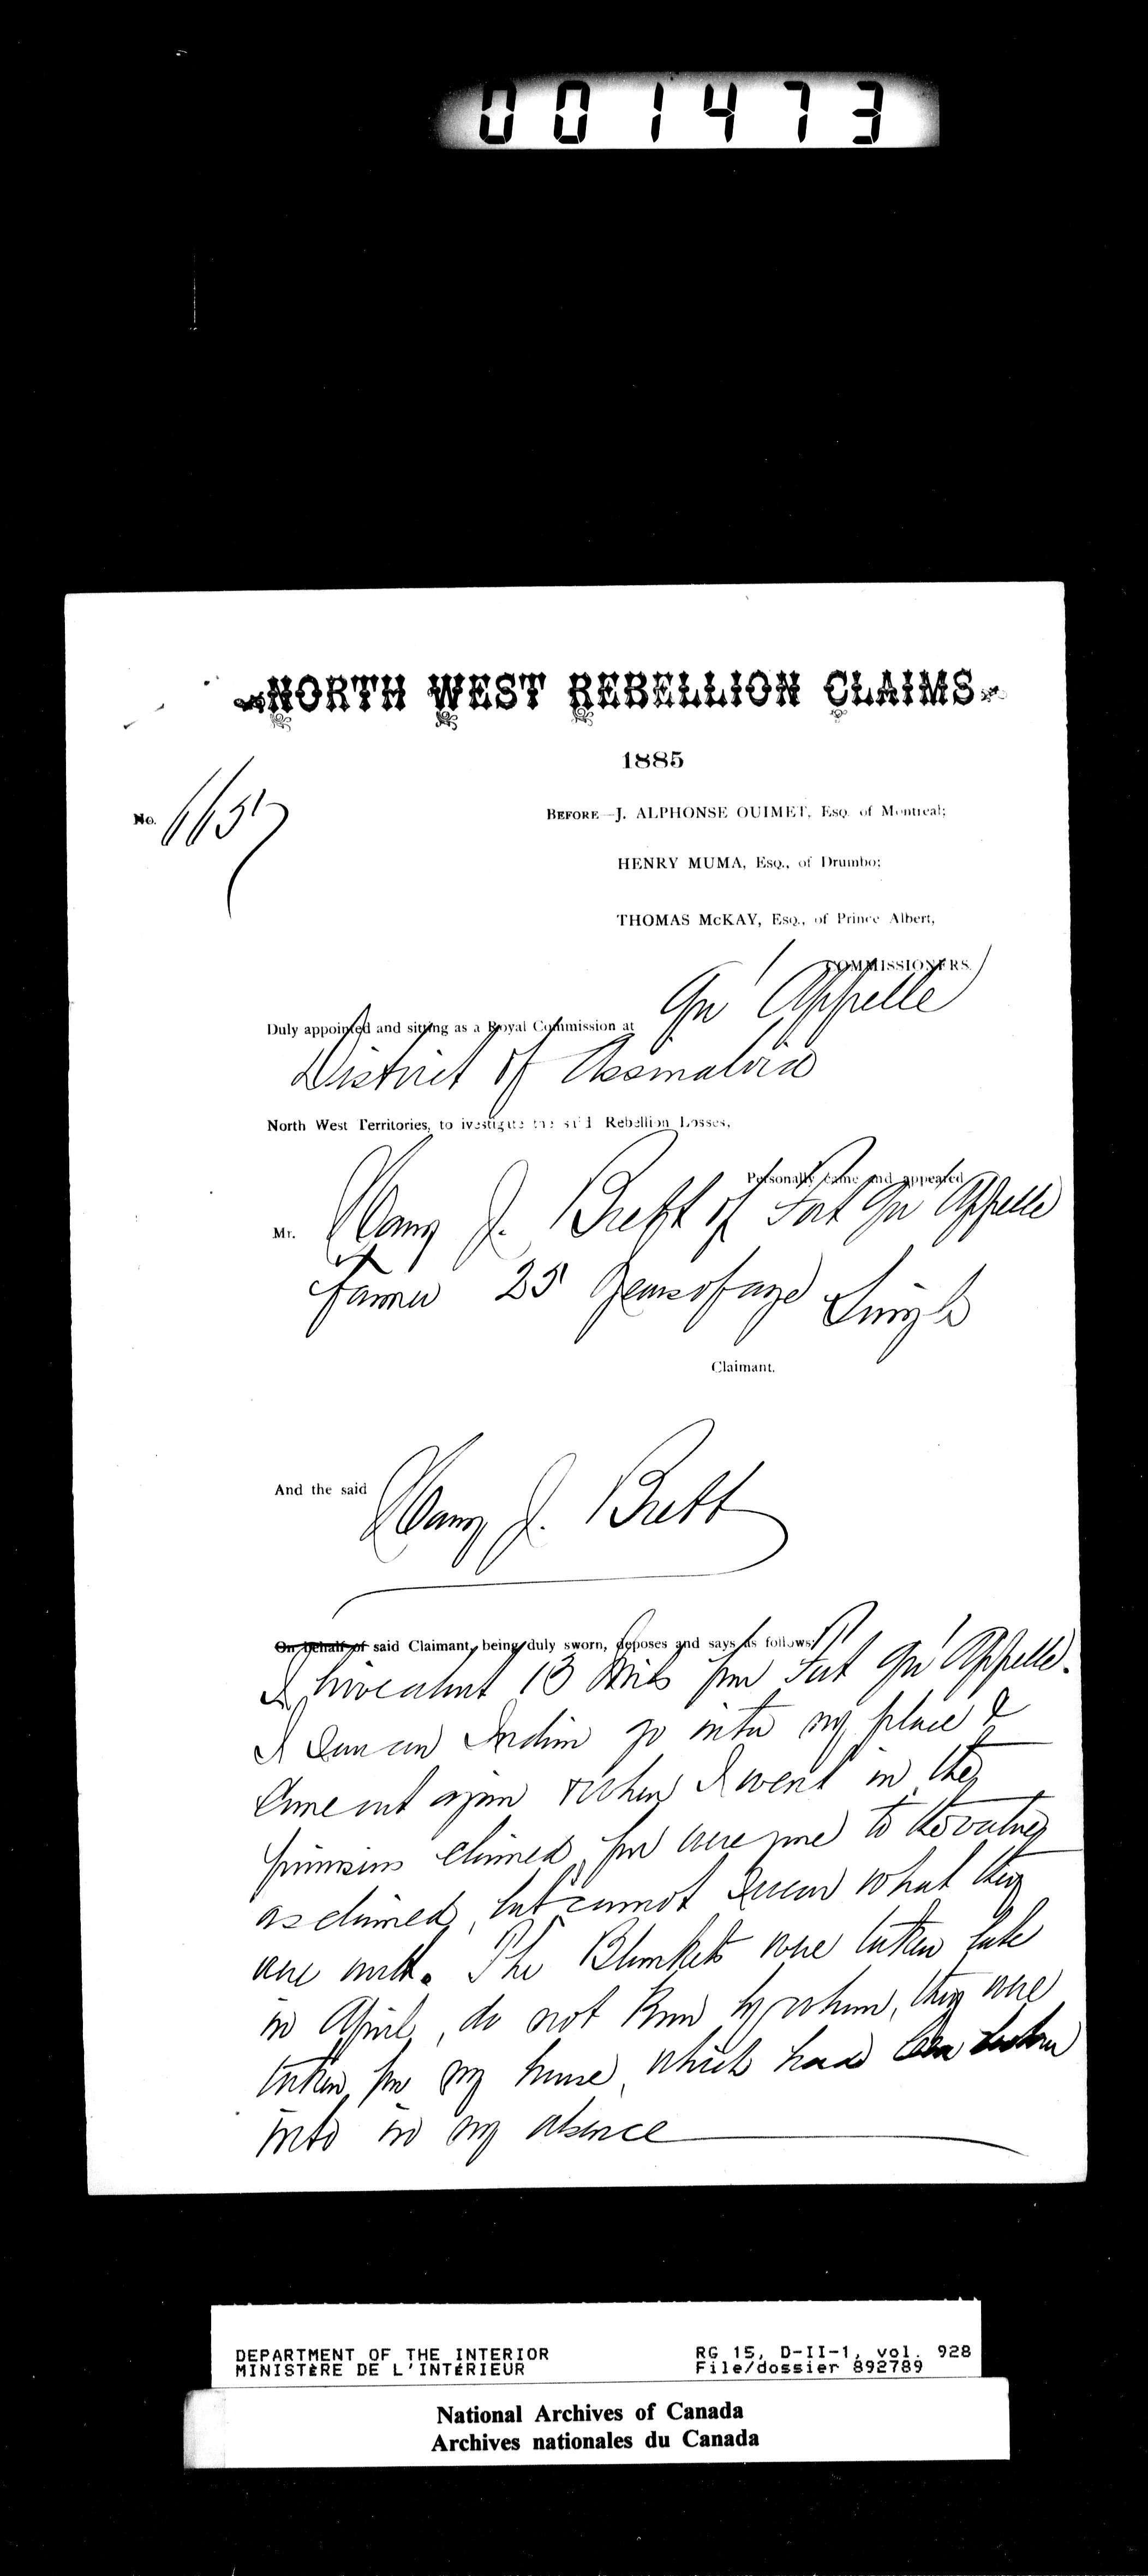 001473
NORTH WEST REBELLION CLAIMS
1885
No. 665
BEFORE—J. ALPHONSE OUIMET, Esq. of Montreal;
HENRY MUMA, Esq., of Drumbo;
THOMAS McKAY, Esq., of Prince Albert,
COMMISSIONERS.
Duly appointed and sitting as a Royal Commission at Qu'Appelle
District of Assinaboia
North West Territories, to ivestigate the said Rebellion Losses,
Personally came and appeared
Mr. Harry J. Brett of Fort Qu'Appelle
farmer 25 years of age Single
Claimant.
And the said Harry J. Brett
On behalf of said Claimant, being duly sworn, deposes and says as follows:
I live about 13 Miles from Fort Qu'Appelle.
I saw an Indian go into my place &
came out again & when I went in the
provisions claimed for were gone to the value
as claimed, but cannot swear what they
were worth. The Blankets were taken late
in April, do not know by whom, they were
taken from my house, which had been broken
into in my absence
DEPARTMENT OF THE INTERIOR
MINISTÈRE DE L'INTÉRIEUR
RG 15, D-II-1, vol. 928
File/dossier 892789
National Archives of Canada
Archives nationales du Canada